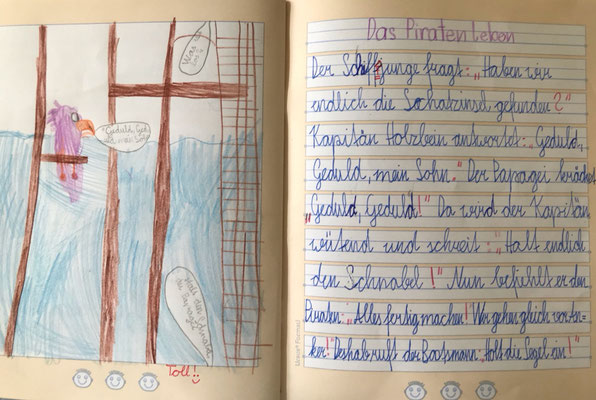 Was ist?
"Geduld, Geduld, mein Sohn."
Halt den Schnabel
Toll!!
Das Piratenleben
Der Schiffsjunge fragt: „Haben wir
endlich die Schatzinsel gefunden?"
Kapitän Holzbein antwortet: „Geduld,
Geduld, mein Sohn." Der Papagei krächzt:
„Geduld, Geduld!" Da wird der Kapitän
wütend und schreit: „Halt endlich
den Schnabel!" Nun befiehlt er den
Piraten: „Alles fertig machen! Wir gehen gleich vor An-
ker! Deshalb ruft der Bootsmann: „Holt die Segel ein!"